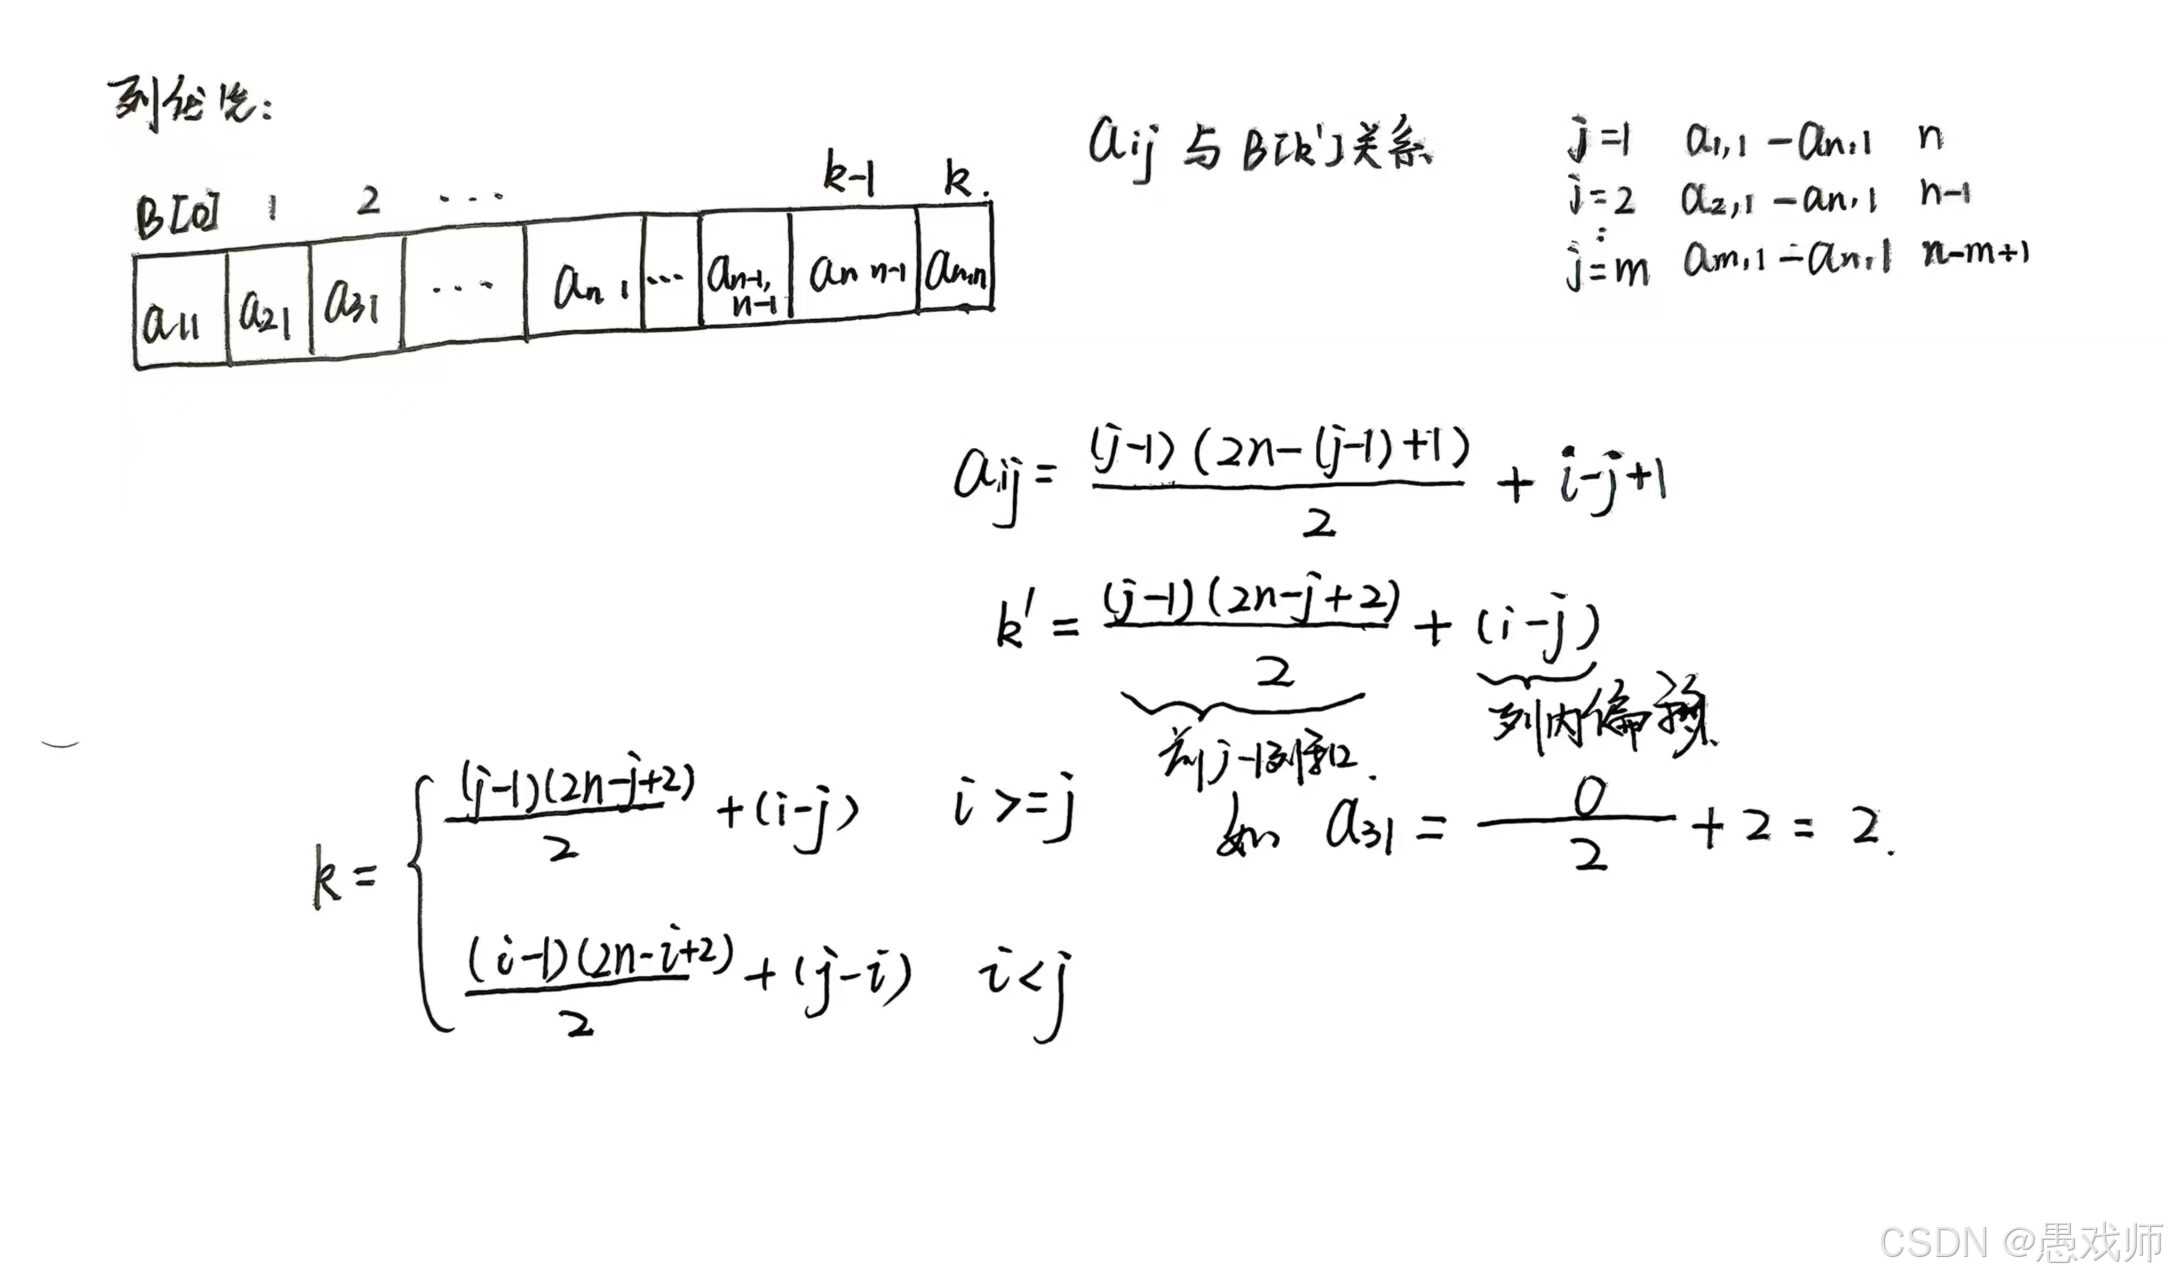 列优先:
B[0] 1 2 ... k-1 k.
a11 a21 a31 ... an1 ... an-1,n-1 an n-1 an,n
aij 与 B[k']关系
j=1 a1,1 - an,1 n
j=2 a2,1 - an,1 n-1
⋮
j=m am,1 - an,1 n-m+1
aij = (j-1)(2n-(j-1)+1)/2 + i-j+1
k' = (j-1)(2n-j+2)/2 + (i-j)
前j-1列和. 列内偏移.
如 a31 = 0/2 + 2 = 2.
k = { (j-1)(2n-j+2)/2 + (i-j) i>=j
(i-1)(2n-i+2)/2 + (j-i) i<j
CSDN @愚戏师